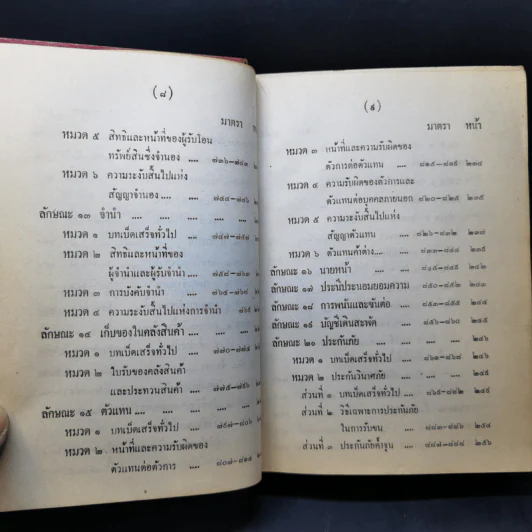 (๘)
มาตรา
หมวด ๕ สิทธิและหน้าที่ของผู้รับโอน
ทรัพย์สินซึ่งจำนอง .... ๗๓๖-๗๔๓
หมวด ๖ ความระงับสิ้นไปแห่ง
สัญญาจำนอง .... ๗๔๔-๗๔๖
ลักษณะ ๑๓ จำนำ .... .... .... ....
หมวด ๑ บทเบ็ดเสร็จทั่วไป .... ๗๔๗-๗๕๗
หมวด ๒ สิทธิและหน้าที่ของ
ผู้จำนำและผู้รับจำนำ .... ๗๕๘-๗๖๓
หมวด ๓ การบังคับจำนำ .... ๗๖๔-๗๖๘
หมวด ๔ ความระงับสิ้นไปแห่งการจำนำ ๗๖๙
ลักษณะ ๑๔ เก็บของในคลังสินค้า .... ....
หมวด ๑ บทเบ็ดเสร็จทั่วไป .... ๗๗๐-๗๗๔
หมวด ๒ ใบรับของคลังสินค้า
และประทวนสินค้า .... ๗๗๕-๗๙๖
ลักษณะ ๑๕ ตัวแทน .... .... .... ....
หมวด ๑ บทเบ็ดเสร็จทั่วไป .... ๗๙๗-๘๐๖
หมวด ๒ หน้าที่และความรับผิดของ
ตัวแทนต่อตัวการ .... ๘๐๗-๘๑๔
(๙)
มาตรา หน้า
หมวด ๓ หน้าที่และความรับผิดของ
ตัวการต่อตัวแทน .... ๘๑๕-๘๑๙ ๒๓๔
หมวด ๔ ความรับผิดของตัวการและ
ตัวแทนต่อบุคคลภายนอก ๘๒๐-๘๒๕ ๒๓๕
หมวด ๕ ความระงับสิ้นไปแห่ง
สัญญาตัวแทน .... ๘๒๖-๘๓๒
หมวด ๖ ตัวแทนค้าต่าง .... ๘๓๓-๘๔๔
ลักษณะ ๑๖ นายหน้า .... ๘๔๕-๘๔๙ ๒๔๒
ลักษณะ ๑๗ ประนีประนอมยอมความ ๘๕๐-๘๕๒
ลักษณะ ๑๘ การพนันและขันต่อ .... ๘๕๓-๘๕๕
ลักษณะ ๑๙ บัญชีเดินสะพัด .... ๘๕๖-๘๖๐
ลักษณะ ๒๐ ประกันภัย .... .... ....
หมวด ๑ บทเบ็ดเสร็จทั่วไป .... ๘๖๑-๘๖๘
หมวด ๒ ประกันวินาศภัย .... ....
ส่วนที่ ๑ บทเบ็ดเสร็จทั่วไป .... ๘๖๙-๘๘๒
ส่วนที่ ๒ วิธีเฉพาะการประกันภัย
ในการรับขน .... ๘๘๓-๘๘๖
ส่วนที่ ๓ ประกันภัยค้ำจุน .... ๘๘๗-๘๘๘ ๒๕๖